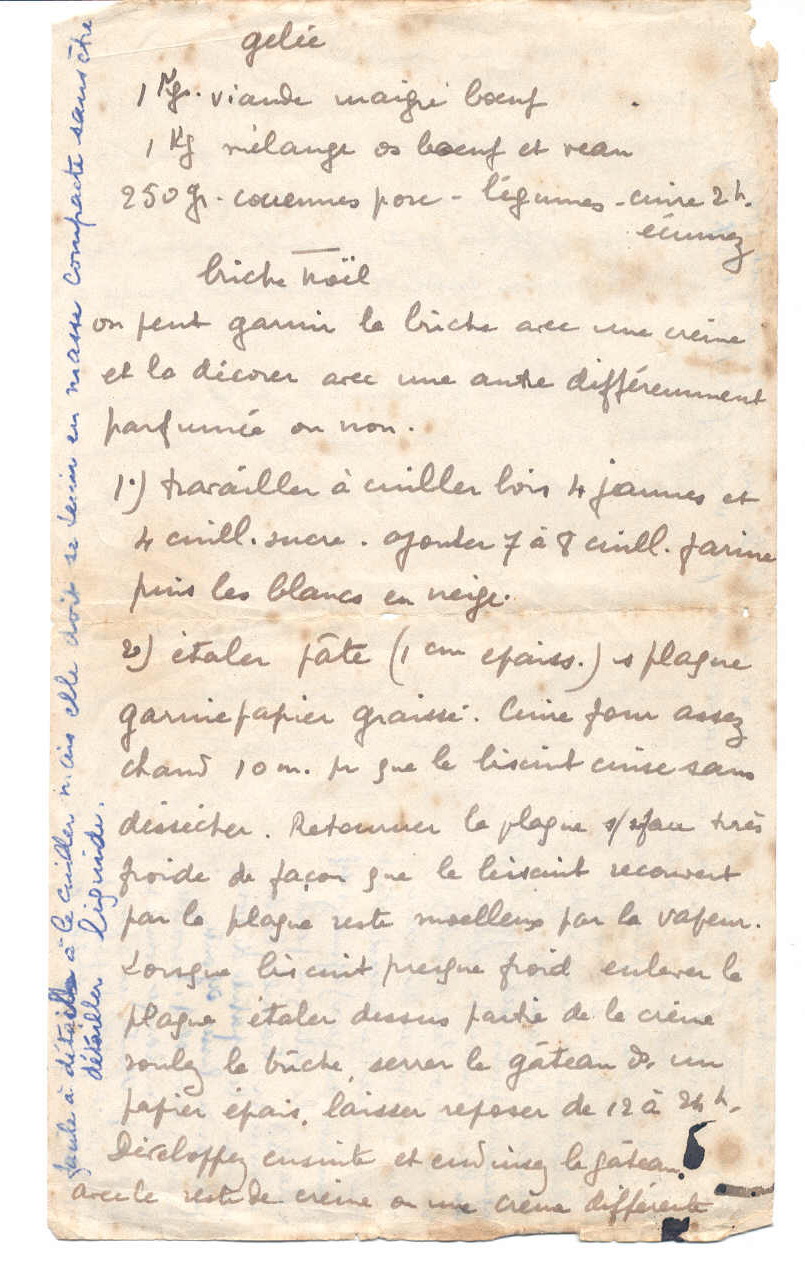 gelée
1 Kg. viande maigre bœuf
1 Kg mélange os bœuf et veau
250 gr. couennes porc - légumes - cuire 2 h.
écumez
bûche Noël
on peut garnir la bûche avec une crème
et la décorer avec une autre différemment
parfumée ou non.
1°) travailler à cuiller bois 4 jaunes et
4 cuill. sucre. ajouter 7 à 8 cuill. farine
puis les blancs en neige.
2°) étaler pâte (1 cm epaiss.) s plaque
garnie papier graissé. Cuire four assez
chaud 10 m. pr que le biscuit cuise sans
dessécher. Retourner la plaque s/ très
froide de façon que le biscuit recouvert
par la plaque reste moelleux par la vapeur.
Lorsque biscuit presque froid enlever la
plaque étaler dessus partie de la crème
roulez la bûche, serrer le gâteau ds un
papier épais, laisser reposer de 12 à 24 h.
Développez ensuite et enduisez le gâteau
avec le reste de crème ou une crème différente
facile à détailler à la cuiller mais elle doit se tenir en masse compacte sans être
détailler liquide.